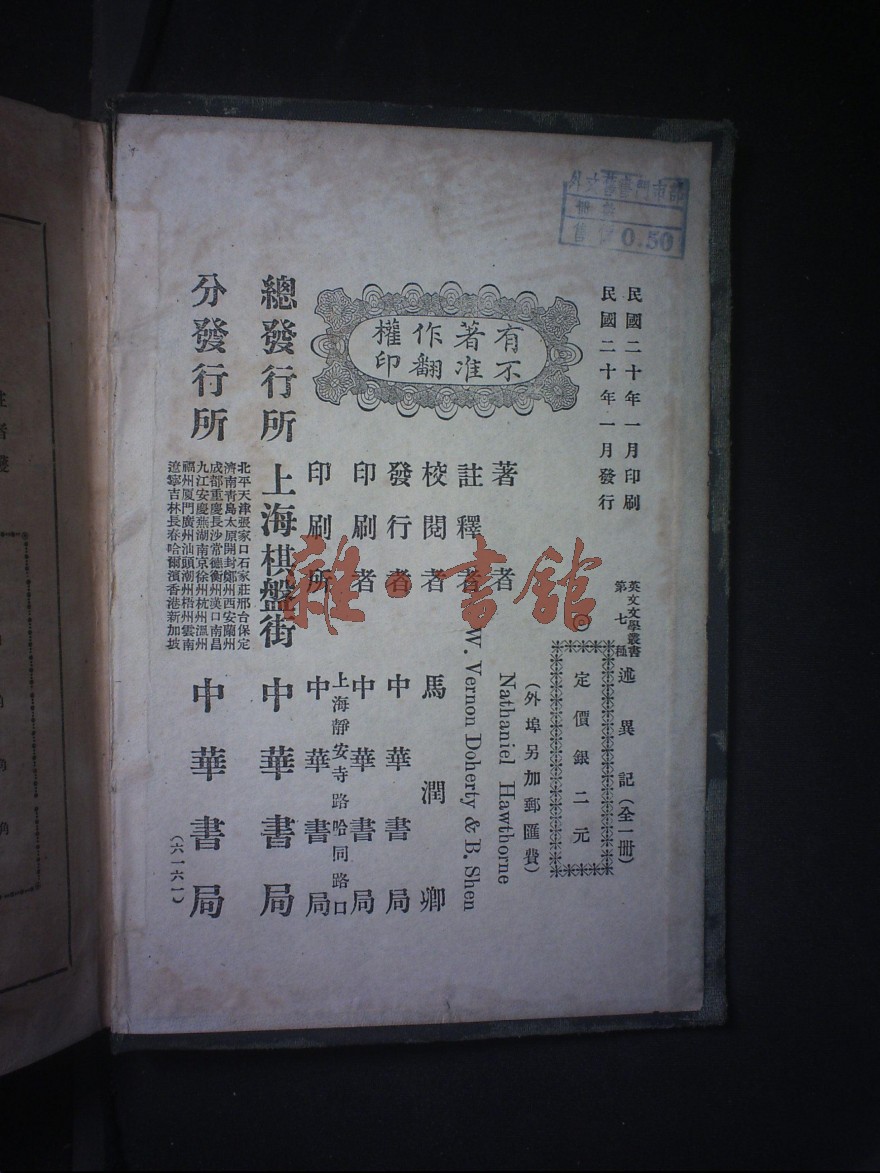 外文舊書門市部
冊數
售價 0.50
民國二十年一月印刷
民國二十年一月發行
有著作權
不准翻印
英文文學叢書
第七種
述異記(全一冊)
◎
定價銀二元
(外埠另加郵匯費)
著者 Nathaniel Hawthorne
註釋者 W. Vernon Doherty & B. Shen
校閱者 馬潤卿
發行者 中華書局
印刷者 中華書局
上海靜安寺路哈同路口
印刷所 中華書局
總發行所 上海棋盤街 中華書局
分發行所
北平天津張家口石家莊邢台保定
濟南青島太原開封鄭州西安蘭州
成都重慶長沙常德衡州漢口南昌
九江安慶蕪湖南京徐州杭州溫州
福州厦門廣州汕頭潮州梧州雲南
遼寧吉林長春哈爾濱香港新加坡
中華書局
(六一六一)
雜·書館